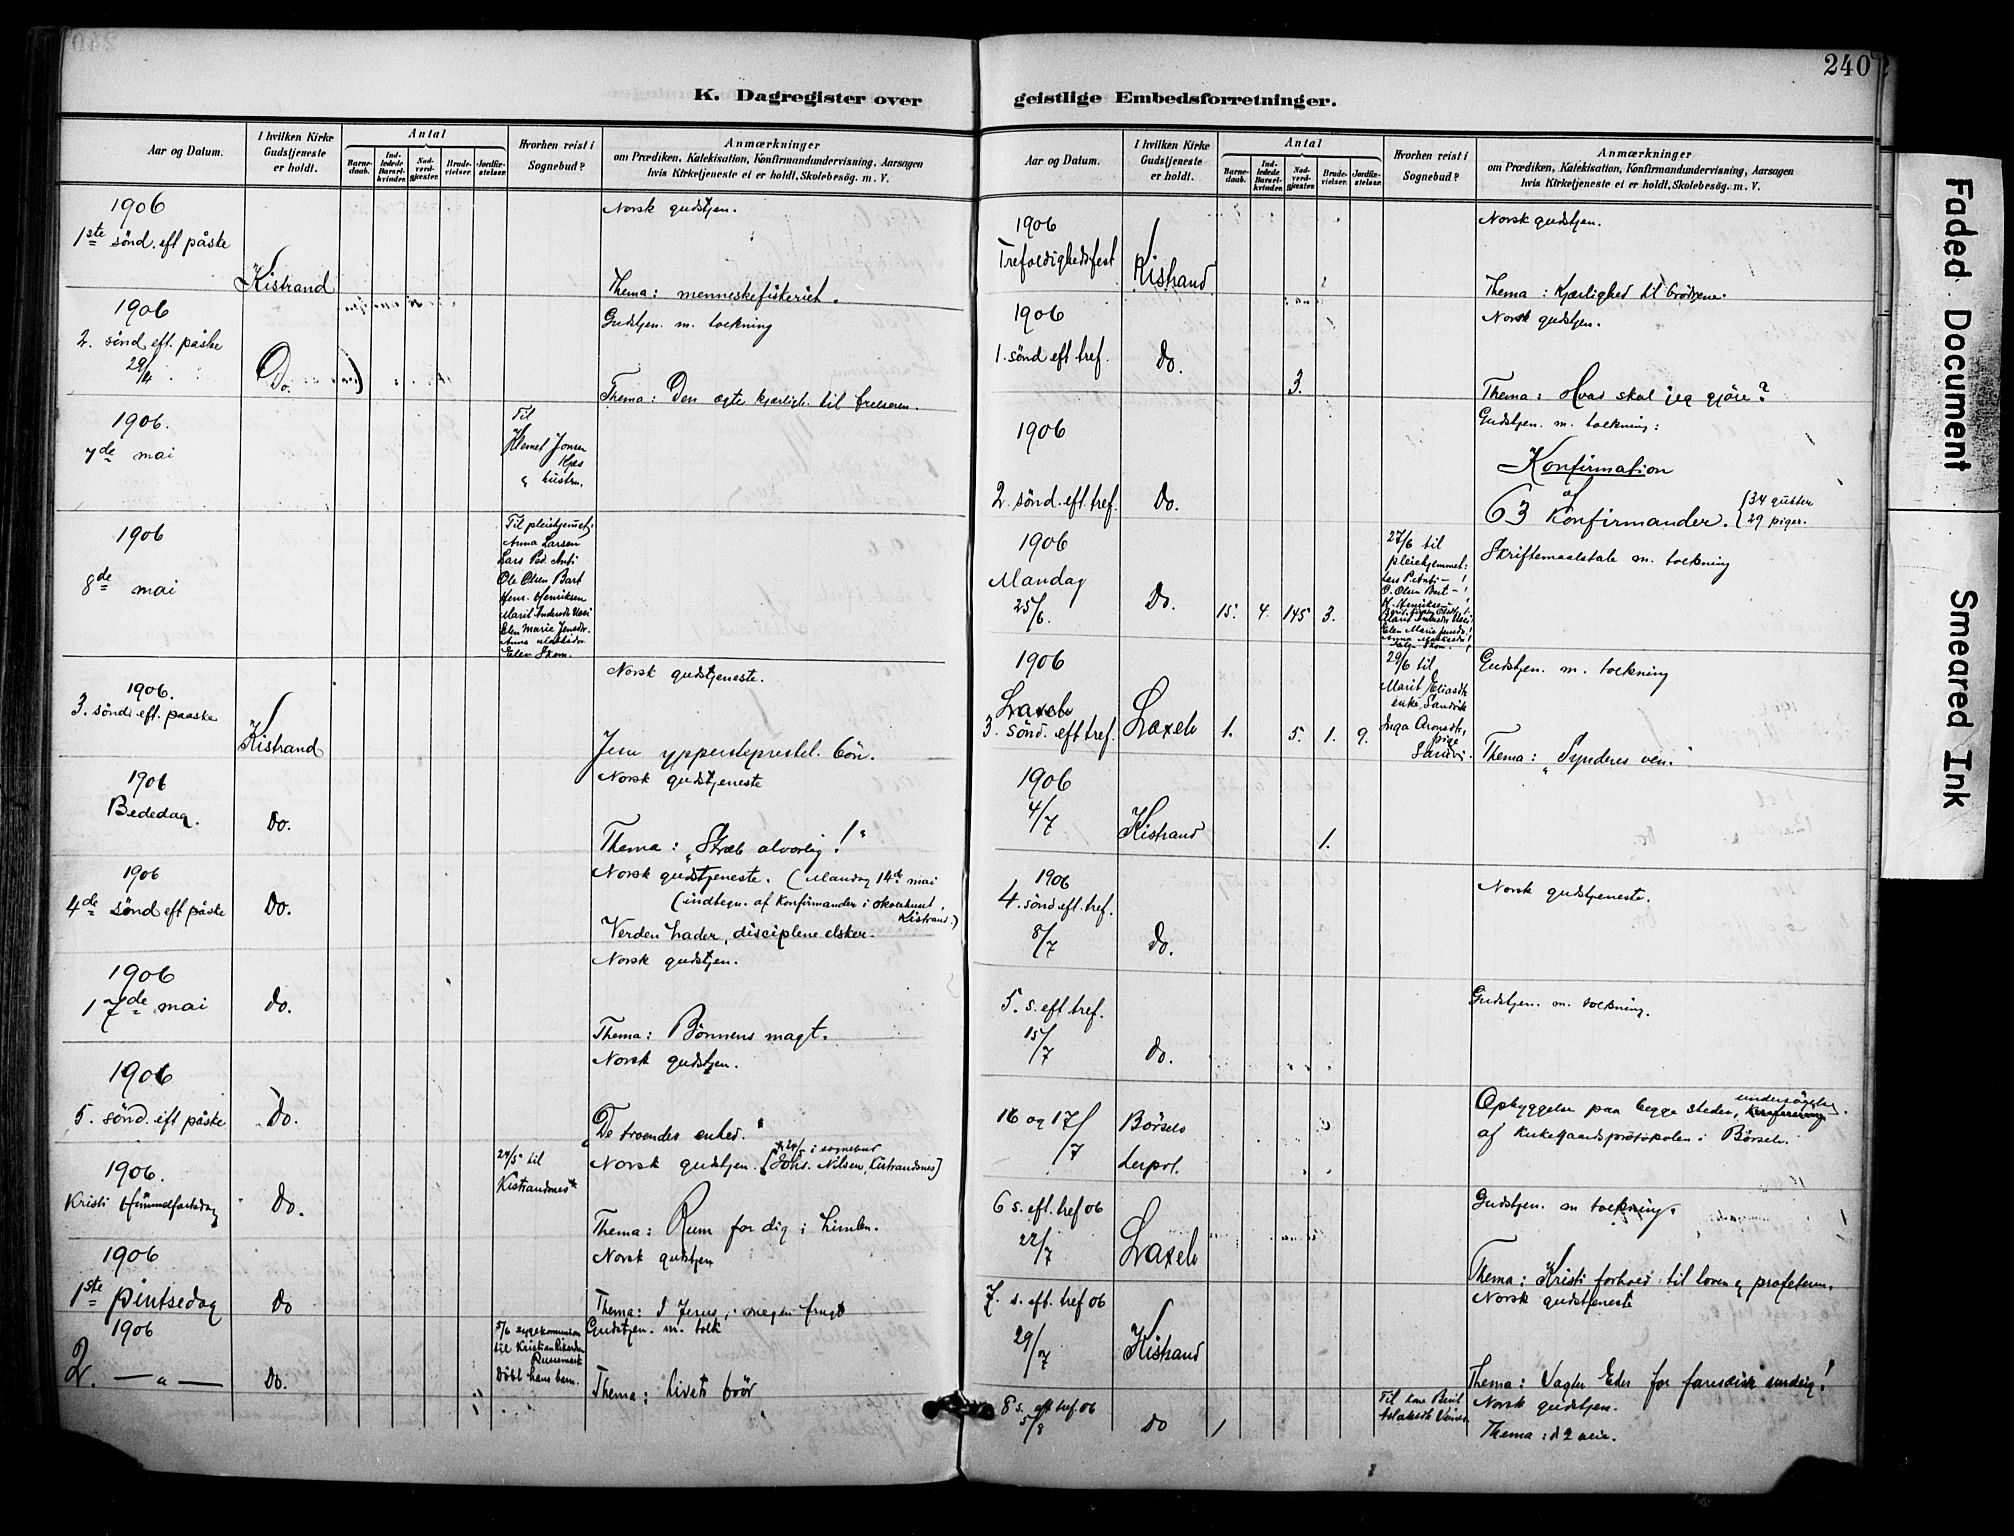 240
K. Dagregister over
Aar og Datum.
I hvilken Kirke
Gudstjeneste
er holdt.
Antal
Barne-
daab.
Ind-
ledede
Barsel-
kvinder.
Nad-
verd-
gjester.
Brude-
vielser.
Jordfæ-
stelser.
Hvorhen reist i
Sognebud?
Anmærkninger
om Prædiken, Katekisation, Konfirmandundervisning, Aarsagen
hvis Kirketjeneste ei er holdt, Skolebesøg. m. V.
1906
1ste sönd. eft påske
Kistrand
Norsk gudstjen.
Thema: menneskefiskeriet.
1906
2. sönd eft. påske
29/4
Do.
Gudstjen. m. tolkning
Thema: Den ægte kjærligh. til frelseren.
1906.
7de mai
Til
Klemet Jonsen
Kjæs
hustru.
1906
8de mai
Til pleiehjemmet:
Anna Larsen
Lars Ped. Anti
Ole Olsen Bart
Henr. Henriksen
Elen Marie Jensdr.
Elen Skom.
1906.
3. sönd. eft. paaske
Kistrand
Norsk gudstjeneste.
Jesu ypperstepræstel. bön.
1906
Bededag.
Do.
Norsk gudstjeneste
Thema: "Stræb alvorlig!"
1906
4de sönd eft påske
Do.
Norsk gudstjeneste. (Mandag 14de mai
(indtegn. af konfirmander i skolehuset,
Kistrand.)
Verden hader, disciplene elsker.
1906
17de mai
Do.
Norsk gudstjen.
Thema: Bönnens magt.
1906
5. sönd. eft påske
Do.
Norsk gudstjen.
De troendes enhed.
1906.
Kristi Himmelfartsdag
Do.
24/5 til
Kistrandnes*
Norsk gudstjen. [* 24/5 i sognebud
Johs. Nilsen, Kistrandsnes]
Thema: Rum for dig i himlen.
1906
1ste pintsedag
Do
Norsk gudstjen
Thema: I Jesus, megen frugt
1906
2. — " —
Do.
5/6 sygekommunion
til Kristian
Döbt hans barn.
Gudstjen. m. tolk
Thema: Livets bröd
geistlige Embedsforretninger.
Aar og Datum.
I hvilken Kirke
Gudstjeneste
er holdt.
Antal
Barne-
daab.
Ind-
ledede
Barsel-
kvinder.
Nad-
verd-
gjester.
Brude-
vielser.
Jordfæ-
stelser.
Hvorhen reist i
Sognebud?
Anmærkninger
om Prædiken, Katekisation, Konfirmandundervisning, Aarsagen
hvis Kirketjeneste ei er holdt, Skolebesøg. m. V.
1906
Trefoldighedsfest
Kistrand
Norsk gudstjen.
Thema: Kjærlighed til brödrene.
1906
1. sönd eft tref.
Do.
3.
Norsk gudstjen.
Thema: Hvad skal jeg gjöre?
1906
2. sönd. eft. tref.
Do.
Gudstjen. m. tolkning:
Konfirmation
af
63 konfirmander. {34 gutter
29 piger.
1906
Mandag
25/6.
Do.
15. 4. 145 3.
27/6 til
pleiehjemmet:
Lars P. Anti - !
O. Olsen Bart - !
H. Henriksen
Elen Marie Jensdr. !
Elen Skom. !
Skriftemaalstale m. tolkning
1906
Laxelv
3. sönd. eft tref.
Laxelv
1. 5. 1. 9.
29/6 til
Marit Eliasdtr
enke, Sandvik
Inga Aronsdtr,
pige
Sandvi.
Gudstjen. m. tolkning
Thema: "Synderes ven."
1906
4/7
Kistrand
1.
1906
4. sönd eft. tref.
8/7
Do.
Norsk gudstjeneste.
5. s. eft tref.
15/7
Do.
Gudstjen. m. tolkning.
16 og 17/7
Börselv
Lerpol.
Opbyggelse paa begge steder, undersögelse
af kirkegaardsprotokolen i Börselv.
6 s. eft. tref 06
22/7
Laxelv
Gudstjen. m tolkning.
Thema: Kristi forhold til loven & profeterne.
7. s. eft. tref 06
29/7
Kistrand
Norsk gudstjeneste
Thema: Vogter Eder for farisæisk surdeig!
8 s. eft tref. 06
5/8
Do
1
Til kone Berit
Aslaksdtr
Norsk gudstjen.
Thema: d 2 veie.
Faded Document
Smeared Ink